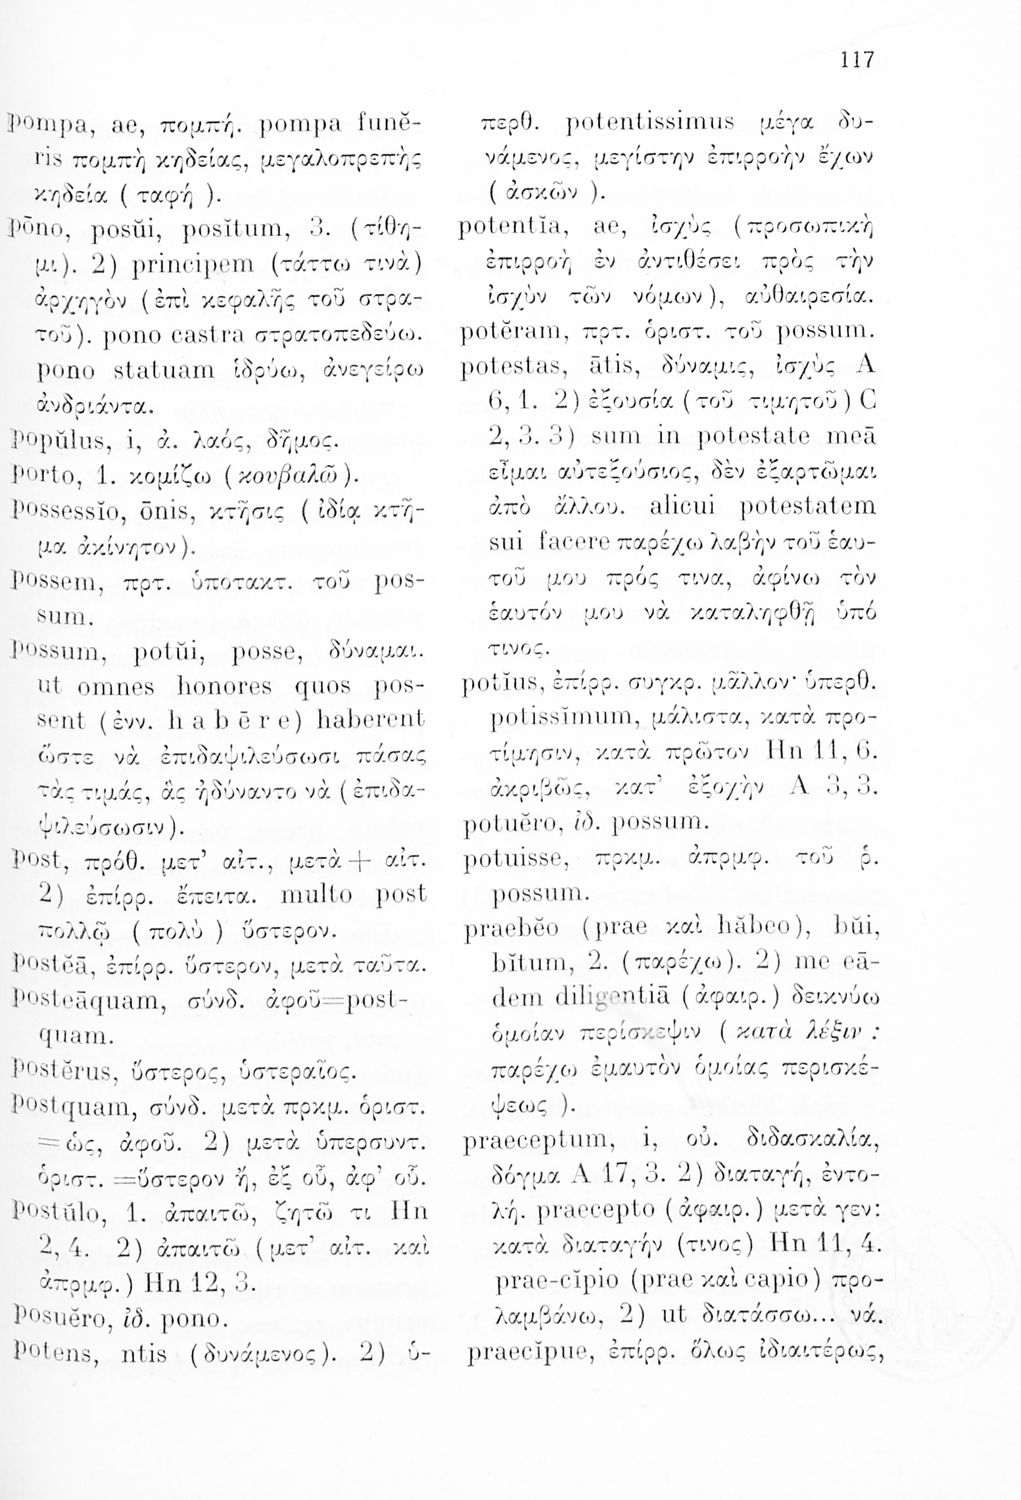 117
pompa, ae, πομπή. pompa funĕ-
ris πομπὴ κηδείας, μεγαλοπρεπὴς
κηδεία ( ταφή ).
pōno, posŭi, posĭtum, 3. (τίθη-
μι). 2) principem (τάττω τινὰ)
ἀρχηγὸν (ἐπὶ κεφαλῆς τοῦ στρα-
τοῦ). pono castra στρατοπεδεύω.
pono statuam ἱδρύω, ἀνεγείρω
ἀνδριάντα.
popŭlus, i, ἀ. λαός, δῆμος.
porto, 1. κομίζω (κουβαλῶ).
possessĭo, ōnis, κτῆσις ( ἰδίᾳ κτῆ-
μα ἀκίνητον).
possem, πρτ. ὑποτακτ. τοῦ pos-
sum.
possum, potŭi, posse, δύναμαι.
ut omnes honores quos pos-
sent (ἐνν. habēre) haberent
ὥστε νὰ ἐπιδαψιλεύσωσι πάσας
τὰς τιμάς, ἃς ἠδύναντο νὰ (ἐπιδα-
ψιλεύσωσιν).
post, πρόθ. μετ’ αἰτ., μετὰ + αἰτ.
2) ἐπίρρ. ἔπειτα. multo post
πολλῷ ( πολὺ ) ὕστερον.
postĕā, ἐπίρρ. ὕστερον, μετὰ ταῦτα.
posteāquam, σύνδ. ἀφοῦ=post-
quam.
postĕrus, ὕστερος, ὑστεραῖος.
postquam, σύνδ. μετὰ πρκμ. ὁριστ.
=ὡς, ἀφοῦ. 2) μετὰ ὑπερσυντ.
ὁριστ. =ὕστερον ἤ, ἐξ οὗ, ἀφ’ οὗ.
postŭlo, 1. ἀπαιτῶ, ζητῶ τι Hn
2, 4. 2) ἀπαιτῶ (μετ’ αἰτ. καὶ
ἀπρμφ.) Hn 12, 3.
posuĕro, ἰδ. pono.
potens, ntis (δυνάμενος). 2) ὑ-
περθ. potentissimus μέγα δυ-
νάμενος, μεγίστην ἐπιρροὴν ἔχων
( ἀσκῶν ).
potentĭa, ae, ἰσχὺς (προσωπικὴ
ἐπιρροὴ ἐν ἀντιθέσει πρὸς τὴν
ἰσχὺν τῶν νόμων), αὐθαιρεσία.
potĕram, πρτ. ὁριστ. τοῦ possum.
potestas, ātis, δύναμις, ἰσχὺς A
6, 1. 2) ἐξουσία (τοῦ τιμητοῦ) C
2, 3. 3) sum in potestate meā
εἶμαι αὐτεξούσιος, δὲν ἐξαρτῶμαι
ἀπὸ ἄλλου. alicui potestatem
sui facere παρέχω λαβὴν τοῦ ἑαυ-
τοῦ μου πρός τινα, ἀφίνω τὸν
ἑαυτόν μου νὰ καταληφθῇ ὑπό
τινος.
potĭus, ἐπίρρ. συγκρ. μᾶλλον· ὑπερθ.
potissĭmum, μάλιστα, κατὰ προ-
τίμησιν, κατὰ πρῶτον Hn 11, 6.
ἀκριβῶς, κατ’ ἐξοχὴν A 3, 3.
potuĕro, ἰδ. possum.
potuisse, πρκμ. ἀπρμφ. τοῦ ῥ.
possum.
praebĕo (prae καὶ hăbeo), bŭi,
bĭtum, 2. (παρέχω). 2) me eā-
dem diligentiā (ἀφαιρ.) δεικνύω
ὁμοίαν περίσκεψιν ( κατὰ λέξιν :
παρέχω ἐμαυτὸν ὁμοίας περισκέ-
ψεως ).
praeceptum, i, οὐ. διδασκαλία,
δόγμα A 17, 3. 2) διαταγή, ἐντο-
λή. praecepto (ἀφαιρ.) μετὰ γεν:
κατὰ διαταγήν (τινος) Hn 11, 4.
prae-cĭpio (prae καὶ capio) προ-
λαμβάνω, 2) ut διατάσσω... νά.
praecĭpue, ἐπίρρ. ὅλως ἰδιαιτέρως,